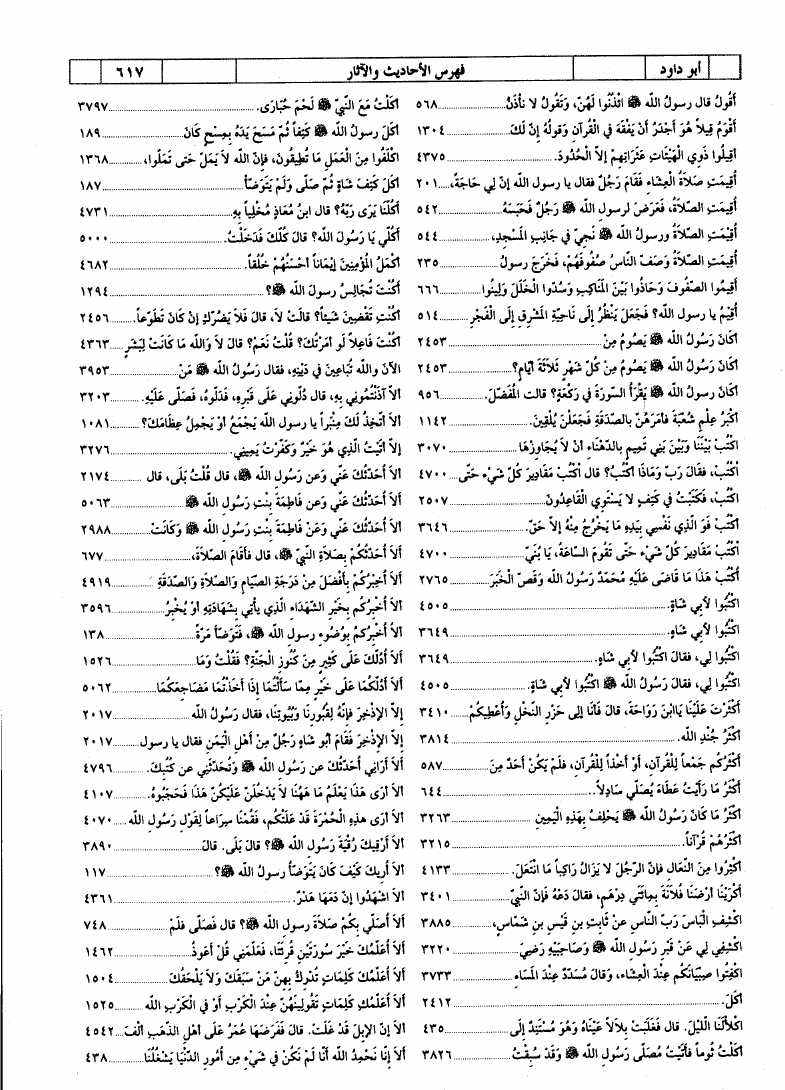 أبو داود
فهرس الأحاديث والآثار
٦١٧
أَقُولُ قال رسولُ الله ﷺ ائْذَنُوا لَهُنَّ، وَتَقُولُ لا نَأْذَنُ. ٥٦٨
أَقْوَمُ قِيلاً هُوَ أَجْدَرُ أَنْ يَفْقَهَ في الْقُرآنِ وَقَوْلُهُ إنَّ لَكَ ١٣٠٤
أَقِيلُوا ذَوِي الْهَيْئَاتِ عَثَرَاتِهِمْ إلاَّ الْحُدُودَ. ٤٣٧٥
أُقِيمَتْ صَلاَةُ الْعِشَاءِ فَقَامَ رَجُلٌ فقال يا رسول الله إنَّ لي حَاجَةً، ٢٠١
أُقِيمَتِ الصَّلاَةُ، فَعَرَضَ لرسولِ الله ﷺ رَجُلٌ فَحَبَسَهُ ٥٤٢
أُقِيمَتِ الصَّلاَةُ ورسولُ الله ﷺ نَجِيٌّ في جَانِبِ المَسْجِدِ، ٥٤٤
أُقِيمَتِ الصَّلاَةُ وَصَفَّ النَّاسُ صُفُوفَهُمْ، فَخَرَجَ رسولُ ٢٣٥
أَقِيمُوا الصُّفُوفَ وَحَاذُوا بَيْنَ المَنَاكِبِ وَسُدُّوا الْخَلَلَ وَلِينُوا ٦٦٦
أُقِيمُ يا رسول الله؟ فَجَعَلَ يَنْظُرُ إلى نَاحِيَةِ المَشْرِقِ إلى الْفَجْرِ ٥١٤
أَكَانَ رَسُولُ الله ﷺ يَصُومُ مِنْ ٢٤٥٣
أَكَانَ رَسُولُ الله ﷺ يَصُومُ مِنْ كُلِّ شَهْرٍ ثَلاَثَةَ أَيَّامٍ؟ ٢٤٥٣
أَكَانَ رسولُ الله ﷺ يَقْرَأُ السُّورَةَ في رَكْعَةٍ؟ قالت المُفَصَّلَ. ٩٥٦
أَكْبَرُ عِلْمِ شُعْبَةَ فأمَرَهُنَّ بالصَّدَقَةِ فَجَعَلْنَ يُلْقِينَ. ١١٤٢
اكْتُبْ بَيْنَنَا وَبَيْنَ بَني تَمِيمٍ بالدَّهْنَاءِ أنْ لاَ يُجَاوِزَهَا ٣٠٧٠
اكْتُبْ، فقالَ رَبِّ وَمَاذَا أَكْتُبُ؟ قال اكْتُبْ مَقَادِيرَ كُلِّ شَيْءٍ حَتَّى ٤٧٠٠
اكْتُبْ، فَكَتَبْتُ في كَتِفٍ لا يَسْتَوِي الْقَاعِدُونَ ٢٥٠٧
اكْتُبْ فَوَ الَّذِي نَفْسِي بِيَدِهِ مَا يَخْرُجُ مِنْهُ إلاَّ حَقٌّ. ٣٦٤٦
اكْتُبْ مَقَادِيرَ كُلِّ شَيْءٍ حَتَّى تَقُومَ السَّاعَةُ، يَا بُنَيَّ ٤٧٠٠
اكْتُبْ هَذَا مَا قَاضَى عَلَيْهِ مُحمَّدٌ رَسُولُ الله وَقَصَّ الْخَبَرَ ٢٧٦٥
اكْتُبُوا لأبي شَاةٍ. ٤٥٠٥
اكْتُبُوا لأبي شَاهٍ. ٣٦٤٩
اكْتُبُوا لِي، فقالَ اكْتُبُوا لأبي شَاهٍ. ٣٦٤٩
اكْتُبُوا لي، فقال رَسُولُ الله ﷺ اكْتُبُوا لأبي شَاةٍ. ٤٥٠٥
أكْثَرْتَ عَلَيْنَا يَاابْنَ رَوَاحَةَ، قال فَأنَا إلى حَزْرِ النَّخْلِ وَأُعْطِيكُمْ ٣٤١٠
أكْثَرُ جُنْدِ الله. ٣٨١٤
أكْثَرُكُم جَمْعاً لِلْقُرآنِ، أوْ أخْذاً لِلْقُرآنِ، فَلَمْ يَكُنْ أحَدٌ مِنَ ٥٨٧
أكْثَرُ مَا رَأيْتُ عَطَاءً يُصَلِّي سَادِلاً. ٦٤٤
أكْثَرُ مَا كَانَ رَسُولُ الله ﷺ يَحْلِفُ بِهَذِهِ الْيَمِينِ ٣٢٦٣
أكْثَرُهُمْ قُرْآناً. ٣٢١٥
أكْثِرُوا مِنَ النِّعَالِ فإنَّ الرَّجُلَ لا يَزَالُ رَاكِباً مَا انْتَعَلَ. ٤١٣٣
أكْرَيْنَا أرْضَنَا فُلاَنَةَ بِمَائَتَيْ دِرْهَمٍ، فقال دَعْهُ فإنَّ النَّبيَّ ٣٤٠١
اكْشِفِ الْبَاسَ رَبَّ النَّاسِ عنْ ثَابِتِ بنِ قَيْسِ بنِ شَمَّاسٍ، ٣٨٨٥
اكْشِفِي لِي عَنْ قَبْرِ رَسُولِ الله ﷺ وَصَاحِبَيْهِ رَضيَ ٣٢٢٠
اكْفِتُوا صِبْيَانَكُم عِنْدَ الْعِشَاءِ، وقَالَ مُسَدَّدٌ عِنْدَ المَسَاءِ ٣٧٣٣
أكَلَ. ٢٤١٢
اكْلأْ لَنَا اللَّيْلَ. قال فَغَلَبَتْ بِلاَلاً عَيْنَاهُ وَهُوَ مُسْتَنِدٌ إلى ٤٣٥
أكَلْتُ ثُوماً فَأتَيْتُ مُصَلَّى رَسُولِ الله ﷺ وَقَدْ سُبِقْتُ ٣٨٢٦
أكَلْتُ مَعَ النَّبيِّ ﷺ لَحْمَ حُبَارَى. ٣٧٩٧
أكَلَ رسولُ الله ﷺ كَتِفاً ثُمَّ مَسَحَ يَدَهُ بِمِسْحٍ كَانَ ١٨٩
اكْلَفُوا مِنَ الْعَمَلِ مَا تُطِيقُونَ، فإنَّ الله لاَ يَمَلُّ حَتى تَمَلُّوا، ١٣٦٨
أكَلَ كَتِفَ شَاةٍ ثُمَّ صَلَّى وَلَمْ يَتَوَضَّأْ ١٨٧
أكُلُّنَا يَرَى رَبَّهُ؟ قال ابنُ مُعَاذٍ مُخْلِياً بِهِ ٤٧٣١
أكُلِّي يَا رَسُولَ الله؟ قالَ كُلُّكَ فَدَخَلْتُ. ٥٠٠٠
أكْمَلُ المُؤْمِنِينَ إيمَاناً أحْسَنُهُمْ خُلُقاً. ٤٦٨٢
أكُنْتَ تُجَالِسُ رسولَ الله ﷺ؟ ١٢٩٤
أكُنْتِ تَقْضِينَ شَيْئاً؟ قالَتْ لاَ، قالَ فَلاَ يَضُرُّكِ إنْ كَانَ تَطَوُّعاً. ٢٤٥٦
أكُنْتَ فَاعِلاً لَو أمَرْتُكَ؟ قُلْتُ نَعَمْ؟ قال لاَ وَالله مَا كَانَتْ لِبَشَرٍ ٤٣٦٣
الآنَ وَالله تُبَاعِينَ في دَيْنِهِ، فقال رَسُولُ الله ﷺ مَنْ ٣٩٥٣
ألاَ آذَنْتُمُوني بِهِ، قال دُلُّوني عَلَى قَبْرِهِ، فَدَلُّوهُ، فَصَلَّى عَلَيْهِ. ٣٢٠٣
ألاَ أتَّخِذُ لَكَ مِنْبراً يا رسول الله يَجْمَعُ أوْ يَحْمِلُ عِظَامَكَ؟ ١٠٨١
إلاَّ أتَيْتُ الَّذِي هُوَ خَيْرٌ وَكَفَّرْتُ يَمِيني. ٣٢٧٦
ألاَ أُحَدِّثُكَ عَنِّي وَعن رَسُولِ الله ﷺ، قال قُلْتُ بَلَى، قال ٢١٧٤
ألاَ أُحَدِّثُكَ عَنِّي وَعن فَاطِمَةَ بِنْتِ رَسُولِ الله ﷺ ٥٠٦٣
ألاَ أُحَدِّثُكَ عَنِّي وَعَنْ فَاطِمَةَ بِنْتِ رَسُولِ الله ﷺ وَكَانَتْ ٢٩٨٨
ألاَ أُحَدِّثُكُم بِصَلاَةِ النَّبيِّ ﷺ، قال فأقَامَ الصَّلاَةَ، ٦٧٧
ألاَ أُخْبِرُكُم بِأفْضَلَ مِنْ دَرَجَةِ الصِّيَامِ وَالصَّلاَةِ وَالصَّدَقَةِ ٤٩١٩
ألاَ أُخْبِرُكُم بِخَيْرِ الشُّهَدَاءِ الَّذِي يأتي بِشَهَادَتِهِ أوْ يُخْبِرُ ٣٥٩٦
ألاَ أُخْبِرُكُم بِوُضُوءِ رسولِ الله ﷺ، فَتَوَضَّأ مَرَّةً ١٣٨
ألاَ أدُلُّكَ عَلَى كَثِيرٍ مِنْ كُنُوزِ الْجَنَّةِ؟ فَقُلْتُ وَمَا ١٥٢٦
ألاَ أدُلُّكُمَا عَلَى خَيْرٍ مِمَّا سَألْتُمَا إذَا أخَذْتُمَا مَضَاجِعَكُمَا ٥٠٦٢
إلاَّ الإذْخِرَ فإنَّهُ لِقُبُورِنَا وَبُيُوتِنَا، فقال رَسُولُ الله ٢٠١٧
إلاَّ الإذْخِرَ فَقَامَ أبُو شَاهٍ رَجُلٌ مِنْ أهْلِ الْيَمَنِ فقال يا رسول ٢٠١٧
ألاَ أرَاني أُحَدِّثُكَ عن رَسُولِ الله ﷺ وَتُحَدِّثُني عن كُتُبِكَ. ٤٧٩٦
ألاَ أرَى هَذَا يَعْلَمُ مَا هَهُنَا لاَ يَدْخُلَنَّ عَلَيْكُنَّ هَذَا فَحَجَبُوهُ. ٤١٠٧
ألاَ أرَى هذِهِ الْحُمْرَةَ قَدْ عَلَتْكُم، فَقُمْنَا سِرَاعاً لِقَوْلِ رَسُولِ الله ٤٠٧٠
ألاَ أرْقِيكَ رُقْيَةَ رَسُولِ الله ﷺ؟ قالَ بَلَى. قالَ ٣٨٩٠
ألاَ أُرِيكَ كَيْفَ كَانَ يَتَوَضَّأُ رسولُ الله ﷺ؟ ١١٧
ألاَ اشْهَدُوا إنَّ دَمَهَا هَدَرٌ. ٤٣٦١
ألاَ أُصَلِّي بِكُم صَلاَةَ رسولِ الله ﷺ؟ قال فَصَلَّى فَلَمْ ٧٤٨
ألاَ أُعَلِّمُكَ خَيْرَ سُورَتَيْنِ قُرِئَتَا، فَعَلَّمَني قُلْ أعُوذُ ١٤٦٢
ألاَ أُعَلِّمُكَ كَلِمَاتٍ تُدْرِكُ بِهِنَّ مَنْ سَبَقَكَ وَلاَ يَلْحَقُكَ ١٥٠٤
ألاَ أُعَلِّمُكِ كَلِمَاتٍ تَقُولِينَهُنَّ عِنْدَ الْكَرْبِ أوْ في الْكَرْبِ الله ١٥٢٥
ألاَ إنَّ الإبِلَ قَدْ غَلَتْ. قالَ فَفَرَضَهَا عُمَرُ عَلَى أهْلِ الذَّهَبِ ألْفَ ٤٥٤٢
ألاَ إنَّا نَحْمَدُ الله أنَّا لَمْ نَكُنْ في شَيْءٍ مِن أُمُورِ الدُّنْيَا يَشْغَلُنَا ٤٣٨